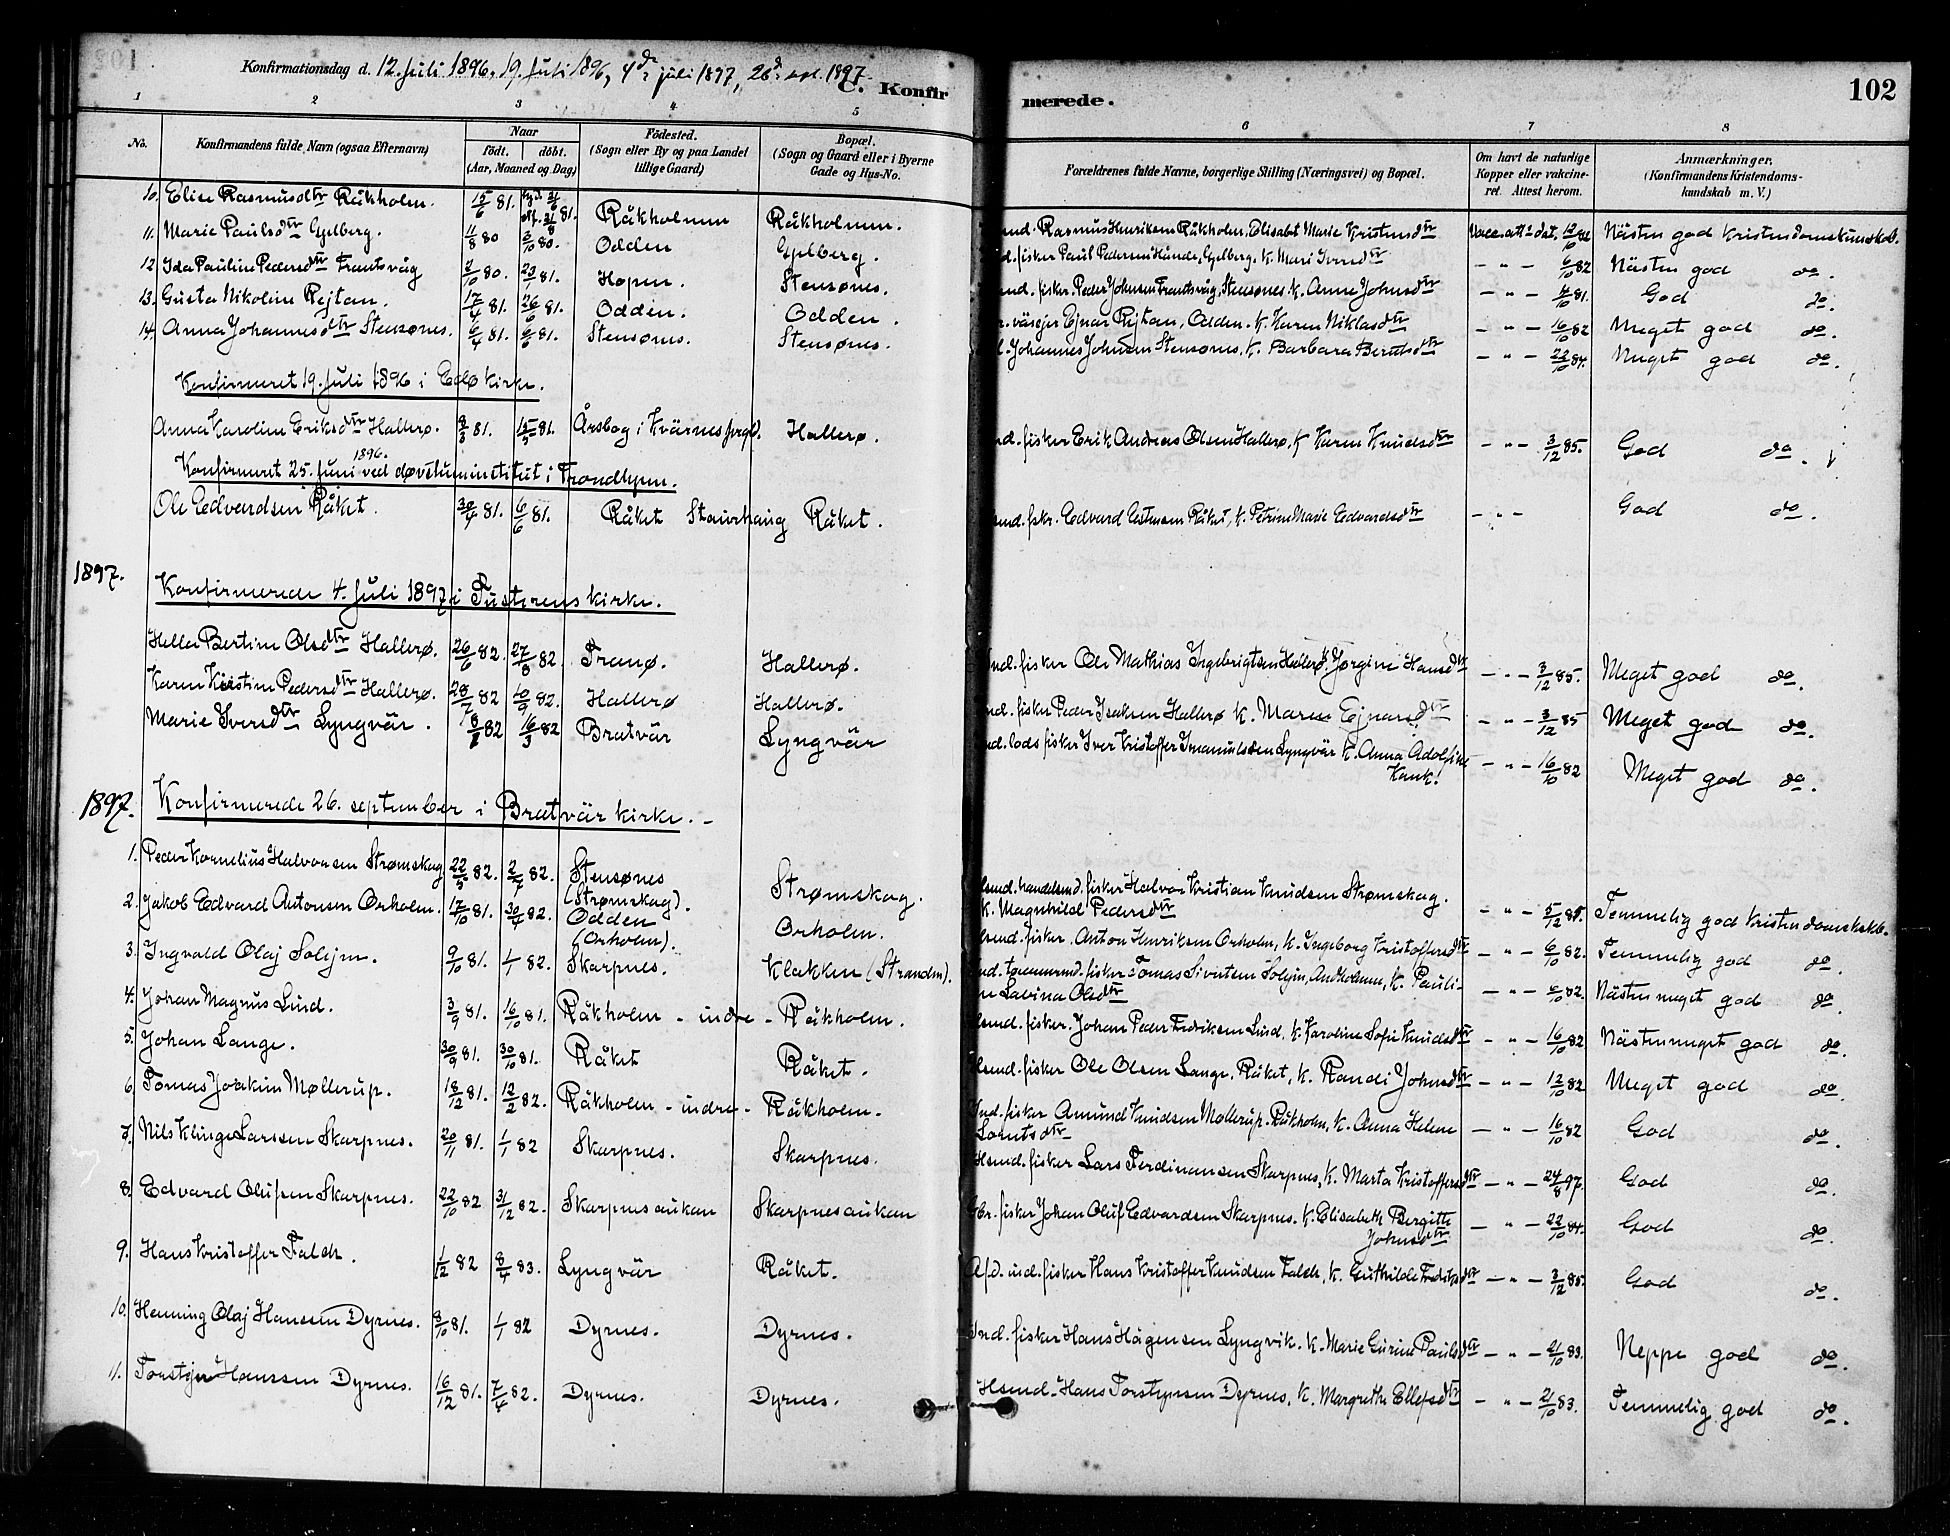 Konfirmationsdag d. 12. juli 1896, 19. juli 1896, 4de juli 1897, 26de sept. 1897
C. Konfirmerede. 102
1 2 3 4 5 6 7 8
No. Konfirmandens fulde Navn (ogsaa Efternavn) Naar født. døbt. (Aar, Maaned og Dag) Fødested. (Sogn eller By og paa Landet tillige Gaard) Bopæl. (Sogn og Gaard eller i Byerne Gade og Hus-No. Forældrenes fulde Navne, borgerlige Stilling (Næringsvei) og Bopæl. Om havt de naturlige Kopper eller vakcineret. Attest herom. Anmærkninger. (Konfirmandens Kristendomskundskab m. V.)
10. Elise Rasmusdtr Råkholm. 15/6 81. 31/8 81. Råkholmen Råkholmen. Rasmus Henriksen Råkholm, Elisabt Marie Kristensdtr Vacc. att. dat. 12/10 82 Nästen god Kristendomskundsk.
11. Marie Paulsdtr Gjelberg. 11/8 80 3/10 80. Odden Gjelberg. fisker Paul Pedersen Hunde, Gjelberg. K. Mari Iversdtr – " – 6/10 82 Nästen god do.
12 Ida Pauline Pedersdtr Frantsvåg 2/10 80. 23/1 81. Hopen. Stensønes. ind. fisker. Peder Johnsen Frantsvåg, Stensønes K. Anne Johnsdtr – " – 4/10 81. God do.
13. Gusta Nikoline Rejtan. 17/4 81. 26/6 81. Odden. Odden. Ejnar Rejtan, Odden. K. Karen Niklasdtr – " – 16/10 82 Meget god do.
14. Anna Johannesdtr Stensønes. 6/4 81. 6/6 81. Stensønes. Stensønes. Johannes Johnsen Stensønes, K. Barbara Berntsdtr – " – 22/10 84. Meget god do.
Konfirmeret 19. juli 1896 i Edø kirke.
Anna Karoline Eriksdtr Hallerø. 8/3 81. 15/5 81. Årsbog i Kvärnes prgld. Hallerø. ind. fisker Erik Andreas Olsen Hallerø, K Karen Knudsdtr – " – 3/12 85. God do.
Konfirmeret 25. juni 1896. ved døvstuminstitut i Trondhjem.
Ole Edvardsen Råket. 30/4 81. 6/6 81. Råket Staurhaug Råket. Edvard Råket, K. Petrine Marie Edvardsdtr – " – God do.
1897.
Konfirmerede 4. juli 1897 i Tusterens kirke.
Hella Bertine Olsdtr Hallerø. 26/6 82. 27/8 82. Tranø. Hallerø. Ind. fisker Ole Mathias Ingebrigtsen Hallerø K. Jørgine Hansdtr – " – 3/12 85. Meget god do.
Karen Kristine Pedersdtr Hallerø. 28/7 82 10/9 82. Hallerø Hallerø. ind. fisker Peder Isaksen Hallerø K. Maren Ejnarsdtr – " – 3/12 85 Meget god do.
Marie Iversdtr Lyngvär. 8/1 82 16/3 82 Bratvär Lyngvär ind. lods fisker Iver Kristoffer Imanuelsen Lyngvär K. Anna Adolfine
Kank! – " – 16/10 82 Meget god do.
1897. Konfirmerede 26. september i Bratvär kirke. –
1. Peder Kornelius Halvorsen Strømskag 22/5 82. 2/7 82. Stensønes (Strømskag). Strømskag. handelsmd. fisker Halvor Kristian Knudsen Strømskag.
K. Magnhild Pedersdtr – " – 5/12 85. Temmelig god Kristendomskskb.
2. Jakob Edvard Antonsen Orholm. 17/10 81. 30/4 82. Odden (Orholm). Orholm. fisker. Anton Henriksen Orholm, K. Ingeborg Kristoffersdtr – " – 6/10 82. Temmelig god do.
3. Ingvald Olaj Solejm. 9/10 81. 1/1 82. Skarpnes. Klakken (Stranden). ind. tømmermd. fisker Tomas Sivertsen Solejm, K. Pauli-
ne Lavina Olsdtr – " – 6/10 82. Nästen meget god do.
4. Johan Magnus Lund. 3/9 81. 16/10 81. Råkholm – indre – Råkholm. fisker. Johan Peder Fredriksen Lund, K. Karoline Sofie Knudsdtr – " – 16/10 82 Nästen meget god do.
5. Johan Lange. 30/9 81. 30/10 81. Råket Råket. fisker Ole Olsen Lange, Råket, K. Randi Johnsdtr – " – 12/10 82 Meget god do.
6. Tomas Joakim Møllerup. 18/12 81. 12/2 82. Råkholm – indre – Råkholm. Ind. fisker Amund Knudsen Møllerup. Råkholm, K. Anna Helene
Lorntsdtr – " – 16/10 82 God do.
7. Nils Klinge Larssen Skarpnes. 20/11 81. 1/1 82 Skarpnes. Skarpnes. Hsmd. fisker Lars Ferdinansen Skarpnes, K. Marta Kristoffersdtr – " – 24/8 97. God do.
8. Edvard Olufsen Skarpnes. 22/10 82 31/12 82. Skarpnesaukan Skarpnesaukan Gbr. fisker Johan Oluf Edvardsen Skarpnes. K. Elisabeth Bergitte
Johnsdtr – " – 22/10 84. God do.
9. Hans Kristoffer Falch. 1/12 82 8/4 83. Lyngvär Råket. Afd. ind. fisker Hans Kristoffer Knudsen Falch, K. Guthilde Fredriksdtr – " – 3/12 85. God do.
10. Henning Olaj Hansen Dyrnes. 8/10 81. 1/1 82 Dyrnes. Dyrnes. Ind. fisker Hans Hågensen Lyngvik. K. Marie Gurine Paulsdtr – " – 21/10 83. Neppe god do.
11. Torstejn Hanssen Dyrnes. 16/12 81. 7/4 82. Dyrnes. Dyrnes. Hsmd. Hans Torstejnsen Dyrnes, K. Margrethe Ellefsdtr – " – 21/10 83. Temmelig god do.